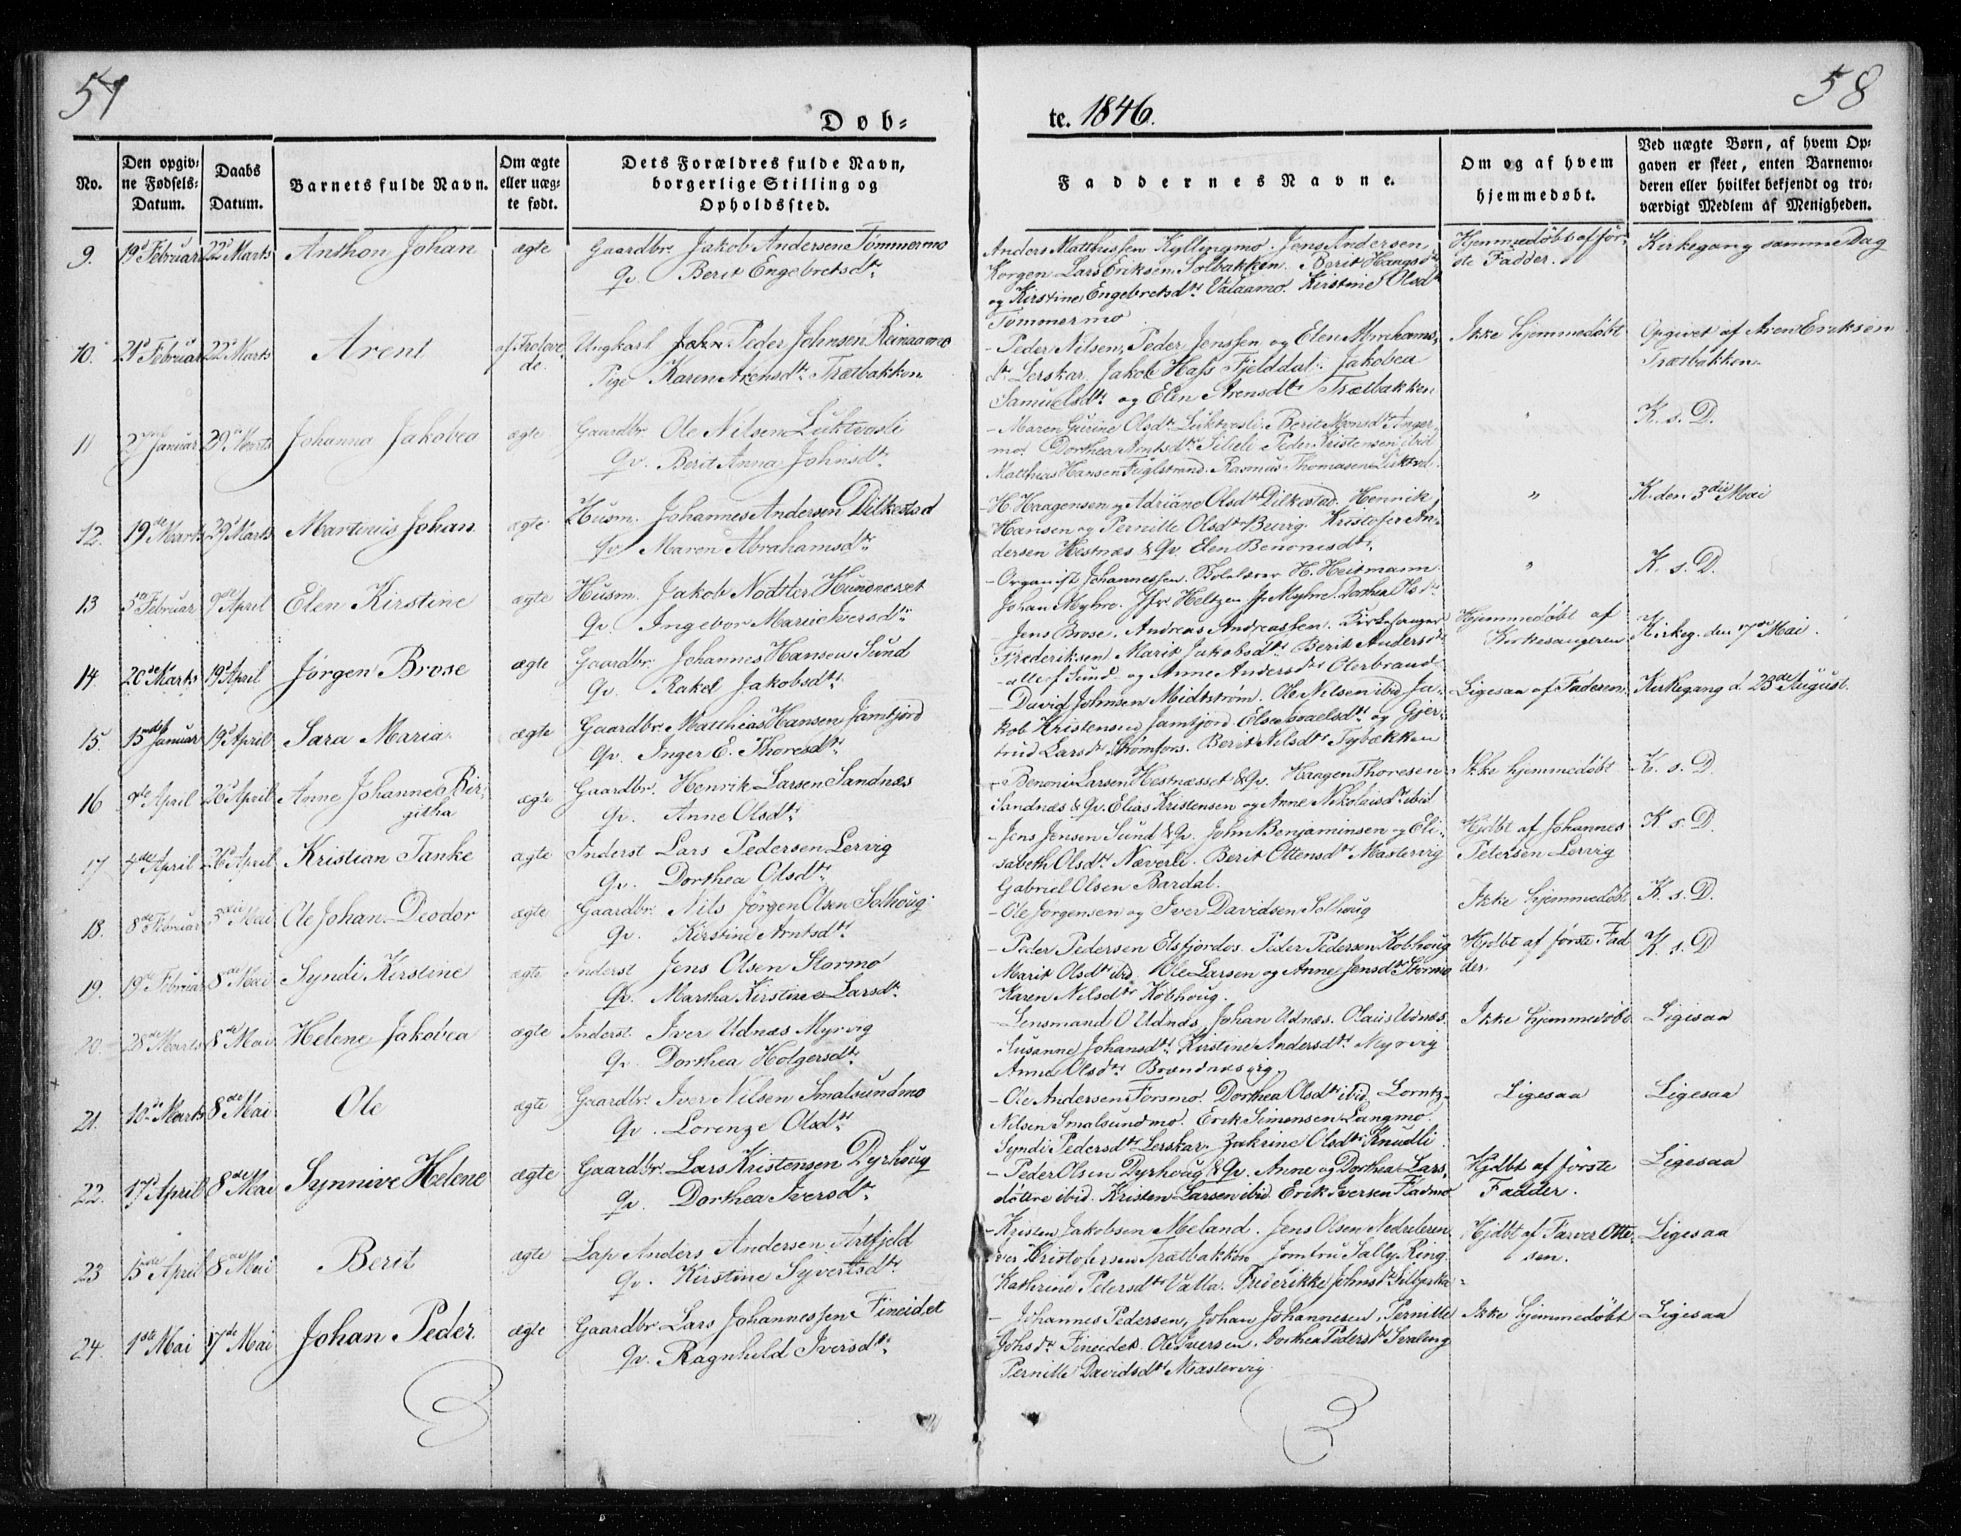 57
58
Døb=
te. 1846.
No.
Den opgiv=
ne Fødsels=
Datum.
Daabs
Datum.
Barnets fulde Navn.
Om ægte
eller uæg=
te født.
Dets Forældres fulde Navn,
borgerlige Stilling og
Opholdssted.
Faddernes Navne.
Om og af hvem
hjemmedøbt.
Ved uægte Børn, af hvem Op=
gaven er skeet, enten Barnemo=
deren eller hvilket bekjendt og tro=
værdigt Medlem af Menigheden.
9. 19d Februar 22d Marts Anthon Johan ægte Gaardbr. Jakob Andersen Tømmermo
Qv Berit Engebretsdtr
Anders Matthissen Kyllingmo. Jens Andersen,
Korgen Lars Eriksen Solbakken. Berit Haagsdtr
og Kirstine Engebretsdtr Valaamo. Kirstine Olsdtr
Tømmermo
Hjemmedøbt af før-
ste Fadder.
Kirkegang samme Dag
10. 21d Februar 22d Marts Arent Ungkarl Peder Johnsen
Pige Karen Arensdtr Trætbakken
- Peder Nilsen, Peder Jenssen og Elen Abrahams-
dtr Lerskar. Jakob Hass Fjelddal. Jakobea
Samuelsdtr og Elen Arensdtr Trætbakken
Ikke hjemmedøbt
Opgivet af Aren Eriksen
Trætbakken.
11 Januar 29de Marts Johanna Jakobea ægte Gaardbr Ole Nilsen Luktvasli
Qv. Berit Anna Johnsdtr
- Maren Gurine Olsdtr Luktvasli. Berit Monsdtr Anger-
mo. Dorthea Arntsdtr Peder Kristensen ibid
Matthias Hansen Fuglstrand. Rasmus Thomasen
"
K. s. D.
12. 19de Marts 29d Marts Martinus Johan ægte Husm. Johannes Andersen Dilkestad
Qv Maren Abrahamsdtr
- H. Haagensen og Adriane Olsdtr Dilkestad. Henrik
Hansen og Pernille Olsdtr Kristofer An-
dersen Hestnæs & Qv. Elen Benonisdtr
"
K. den 3die Mai
13 Februar 9de April Elen Kirstine ægte Husm. Jakob Nodtter Hundneset
Qv Ingebor Marie Iversdtr
- Organist Johannessen. Skolelærer H. Heitmann
Johan Myhre. Jfr Heltzen Jfr Myhre. Dorthea Olsdtr
"
K. s. D.
14 20de Marts 19d April Jørgen Brose ægte Gaardbr. Johannes Hansen Sund
Qv. Rakel Jakobsdtr
- Jens Brose. Andreas Andreassen. Kirkesanger
Frederiksen Marit Jakobsdtr Berit Andersdtr
alle f Sund og Anne Andersdtr Olerbrand
Hjemmedøbt af
Kirkesangeren
Kirkeg. den 17de Mai.
15. Januar 19d April Sara Maria ægte Gaardbr. Matthias Hansen Jamtjord
Qv. Inger E. Thoresdtr
- David Johnsen Midtstrøm. Ole Nilsen ibid Ja-
kob Kristensen Jamtjord. og Gjer-
trud Larsdtr Strømfors. Berit Nilsdtr Tybækken
Ligesaa af Faderen
Kirkegang d. 23de August.
16 9de April 26d April Anne Johanne Bir-
githa ægte Gaardbr. Henrik Larsen Sandnæs
Qv. Anne Olsdtr
- Benoni Larsen Hestnæsset & Qv. Haagen Thoresen
Sandnæs & Qv. Elias Kristensen og Anne Nikolaisdtr ibid
Ikke hjemmedøbt
K. s. D.
17 4de April 26d April Kristian Tanke ægte Inderst Lars Pedersen Lervig
Qv. Dorthea Olsdtr
- Jens Jensen Sund & Qv. John Benjaminsen og Eli-
sabeth Olsdtr Næverli. Berit Ottensdtr Mastervig
Gabriel Olsen Bardal.
Hjdbt af Johannes
Petersen Lervig
K. s. D.
18. 8de Februar 3die Mai Ole Johan Deodor ægte Gaardbr. Nils Jørgen Olsen Solhoug
Qv. Kirstine Arntsdtr
- Ole Jørgensen og Iver Davidsen Solhoug
Ikke hjemmedøbt
K. s. D.
19. 19de Februar 8de Mai Syndi Kirstine ægte Inderst Jens Olsen Stormo
Qv. Martha Kirstine Larsdtr
- Peder Pedersen Elsfjordos. Peder Pedersen Kobhoug
Marit Olsdtr ibid Ole Larsen og Anne Jensdtr Stormo
Karen Nilsdtr Kobhoug.
Hjdbt af første Fad
der.
K. s. D
20. 28de Marts 8de Mai Helene Jakobea ægte Inderst Iver Udnæs Myrvig
Qv. Dorthea Holgersdtr
- Lensmand O Udnæs, Johan Udnæs. Olaus Udnæs.
Susanne Johansdtr Kirstine Andersdtr Myrvig
Anne Olsdtr
Ikke hjemmedøbt
Ligesaa
21. 10de Marts 8de Mai Ole ægte Gaardbr. Iver Nilsen Smalsundmo
Qv. Lorenze Olsdtr
- Ole Andersen Forsmo. Dorthea Olsdtr ibid. Lorntz
Nilsen Smalsundmo. Erik Simonsen Langmo.
Syndi Pedersdtr Lerskar. Zakrine Olsdtr Knudli.
Ligesaa
Ligesaa
22. 17d April 8de Mai Synnive Helene ægte Gaardbr. Lars Kristensen Dyrhoug
Qv. Dorthea Iversdtr
- Peder Olsen Dyrhoug & Qv. Anne og Dorthea Lars-
døttre ibid. Kristen Larsen ibid Erik Iversen Fladmo
Hjdbt af første
Fadder.
Ligesaa
23 15de April 8de Mai Berit ægte Lap Anders Andersen Artfjeld
Qv. Kirstine Syvertsdtr
- Kristen Jakobsen Meland. Jens Olsen Nedreleren
Iver Kristofersen Trætbakken Jomfru Sally Ring
Kathrine Petersdtr Valla. Friderikke Johnsdtr
Hjdbt af Farver Otte-
sen.
Ligesaa
24. 1ste Mai 17de Mai Johan Peder ægte Gaardbr. Lars Johannessen Fineidet
Qv. Ragnhild Iversdtr
- Johannes Pedersen, Johan Johannesen. Pernille
Johsdtr Fineidet. Ole Iversen. Dorthea Pedersdtr Svaleng
Pernille Davidsdtr Mastervig
Ikke hjemmedøbt
Ligesaa